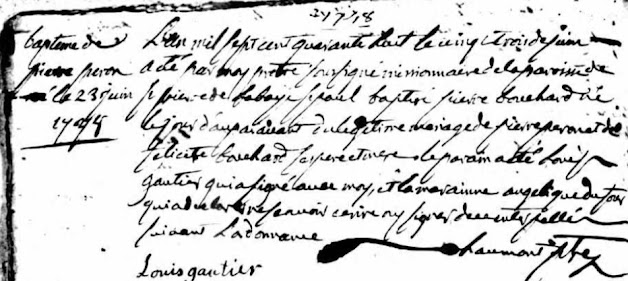 1748
bapteme de
pierre peron
né le 23 juin
1748
L'an mil sept cent quarante huit le vingt trois de juin
a eté par moy prtre soussigné missionnaire de la paroisse de
St pierre de la baye St paul baptisé pierre bouchard né
le jour d'auparavant du legitime mariage de pierre peron et de
félicité bouchard ses pere et mere le parain a eté Louis
gautier qui a signé avec moy, et la maraine angelique du four
qui a declaré ne scavoir ecrire ny signer de ce interpellé
suivant L'ordonnance
Chaumont ptre
Louis gautier